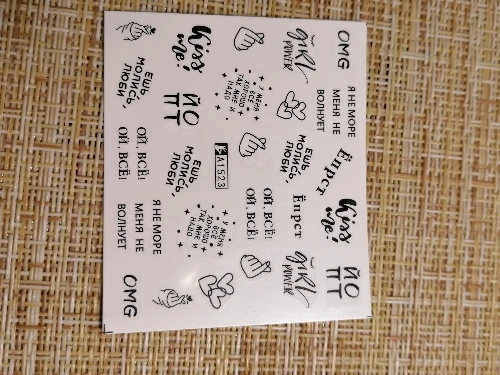 OMG
Я НЕ МОРЕ
МЕНЯ НЕ
ВОЛНУЕТ
Ёпрст
Kiss
me!
ЙО
ПТ
girl
POWER
ЕШЬ
МОЛИСЬ,
ЛЮБИ
Ёпрст
girl
POWER
У МЕНЯ
ВСЁ
ХОРОШО
ТАК МНЕ И
НАДО
A1523
ОЙ, ВСЁ!
ОЙ, ВСЁ!
Kiss
me!
ЙО
ПТ
ЕШЬ
МОЛИСЬ,
ЛЮБИ
У МЕНЯ
ВСЁ
ХОРОШО
ТАК МНЕ И
НАДО
ЕШЬ
МОЛИСЬ,
ЛЮБИ
ОЙ, ВСЁ!
ОЙ, ВСЁ!
Я НЕ МОРЕ
МЕНЯ НЕ
ВОЛНУЕТ
OMG